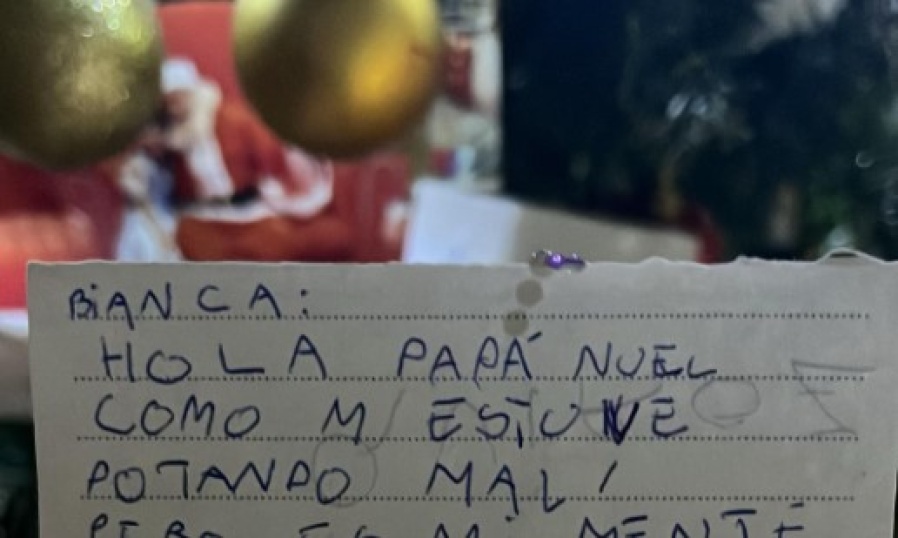 BiANCA:
HOLA PAPÁ NUEL
COMO M ESTUVE
POTANDO MAL
PERO ES MI MENTE